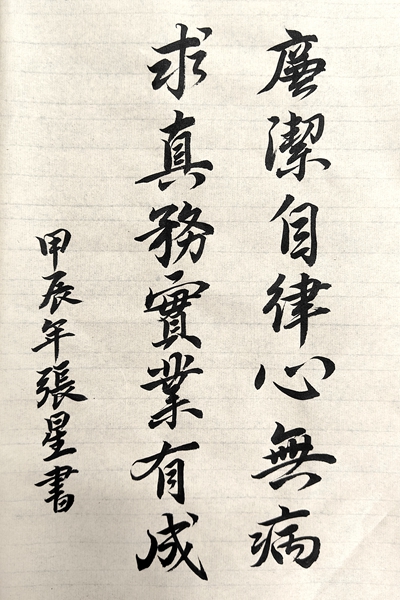 廉潔自律心無病
求真務實業有成
甲辰年張星書